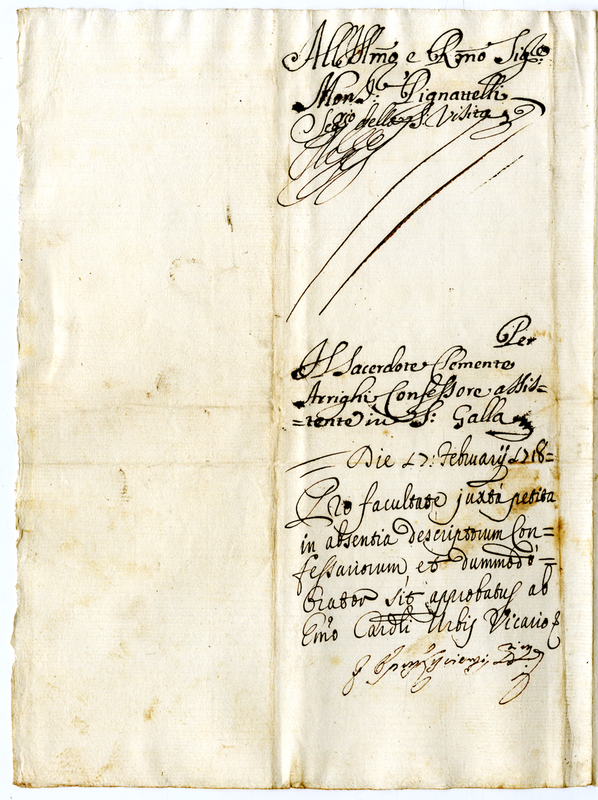 All'Illmo e Rmo Sigre
Monsr: Pignattelli
Segrio della S: Visita
Per
Il Sacerdote Clemente
Arrighi Confessore assis=
=tente in S: Galla
Die 17: February 1718=
Pro facultate juxtà petita
in absentia descriptorum Con=
fessariorum et dummodò=
Orator sit approbatus ab
Emo Cardli Urbis Vicario